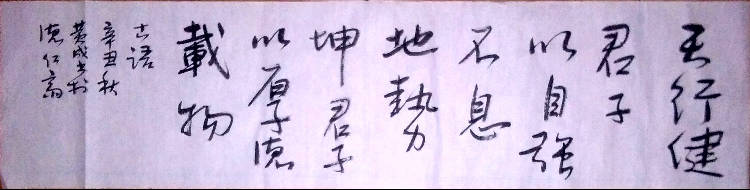 天行健
君子
以自強
不息
地勢
坤君子
以厚德
載物
古語
辛丑秋
黄成书於
德仁斋